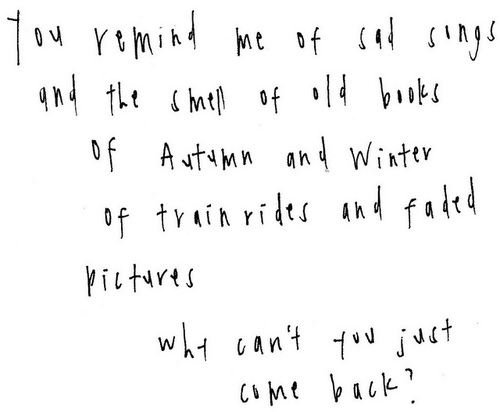 You remind me of sad songs
and the smell of old books
of Autumn and Winter
of train rides and faded
pictures
why can't you just
come back?